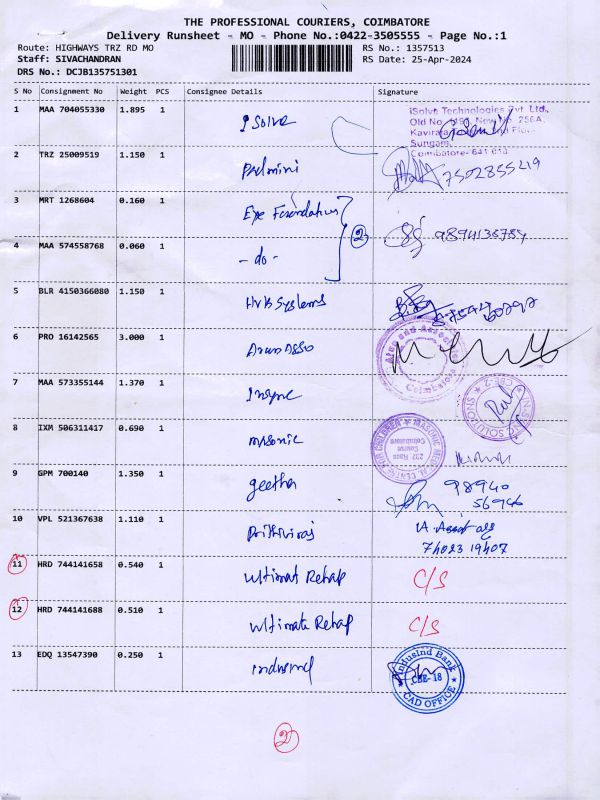 THE PROFESSIONAL COURIERS, COIMBATORE
Delivery Runsheet - MO - Phone No.:0422-3505555 - Page No.:1
Route: HIGHWAYS TRZ RD MO RS No.: 1357513
Staff: SIVACHANDRAN RS Date: 25-Apr-2024
DRS No.: DCJB135751301
S No Consignment No Weight PCS Consignee Details Signature
1 MAA 704055330 1.895 1 I Solve
iSolve Technologies Pvt. Ltd.,
Sungam,
Coimbatore- 641 018
2 TRZ 25009519 1.150 1 Padmini 7502855219
3 MRT 1268604 0.160 1 Eye Foundation
2 9894138784
4 MAA 574558768 0.060 1 - do -
5 BLR 4150366080 1.150 1 HVB Systems
6 PRO 16142565 3.000 1 Arun Asso
Arun and Associates
Coimbatore
7 MAA 573355144 1.370 1 Insync
CBE-2
8 IXM 506311417 0.690 1 masonic
232 Race
Course
Coimbatore
9 GPM 700140 1.350 1 geetha 98940
56946
10 VPL 521367638 1.110 1 Prithiviraj
74023 19407
11 HRD 744141658 0.540 1 Ultimat Rehap C/S
12 HRD 744141688 0.510 1 Ultimate Rehap C/S
13 EDQ 13547390 0.250 1
IndusInd Bank
CBE-18
CAD OFFICE
2